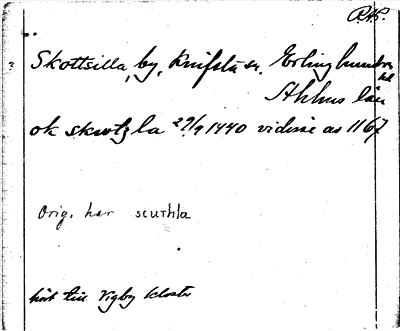 R.A.P.
Skottsilla, by, Knifsta sn. Erlinghundra
hd
Sthlms län
ok skutzla 29/9 1440 vidisse as 1167
Orig. har scuthla
hört till Vigby kloster